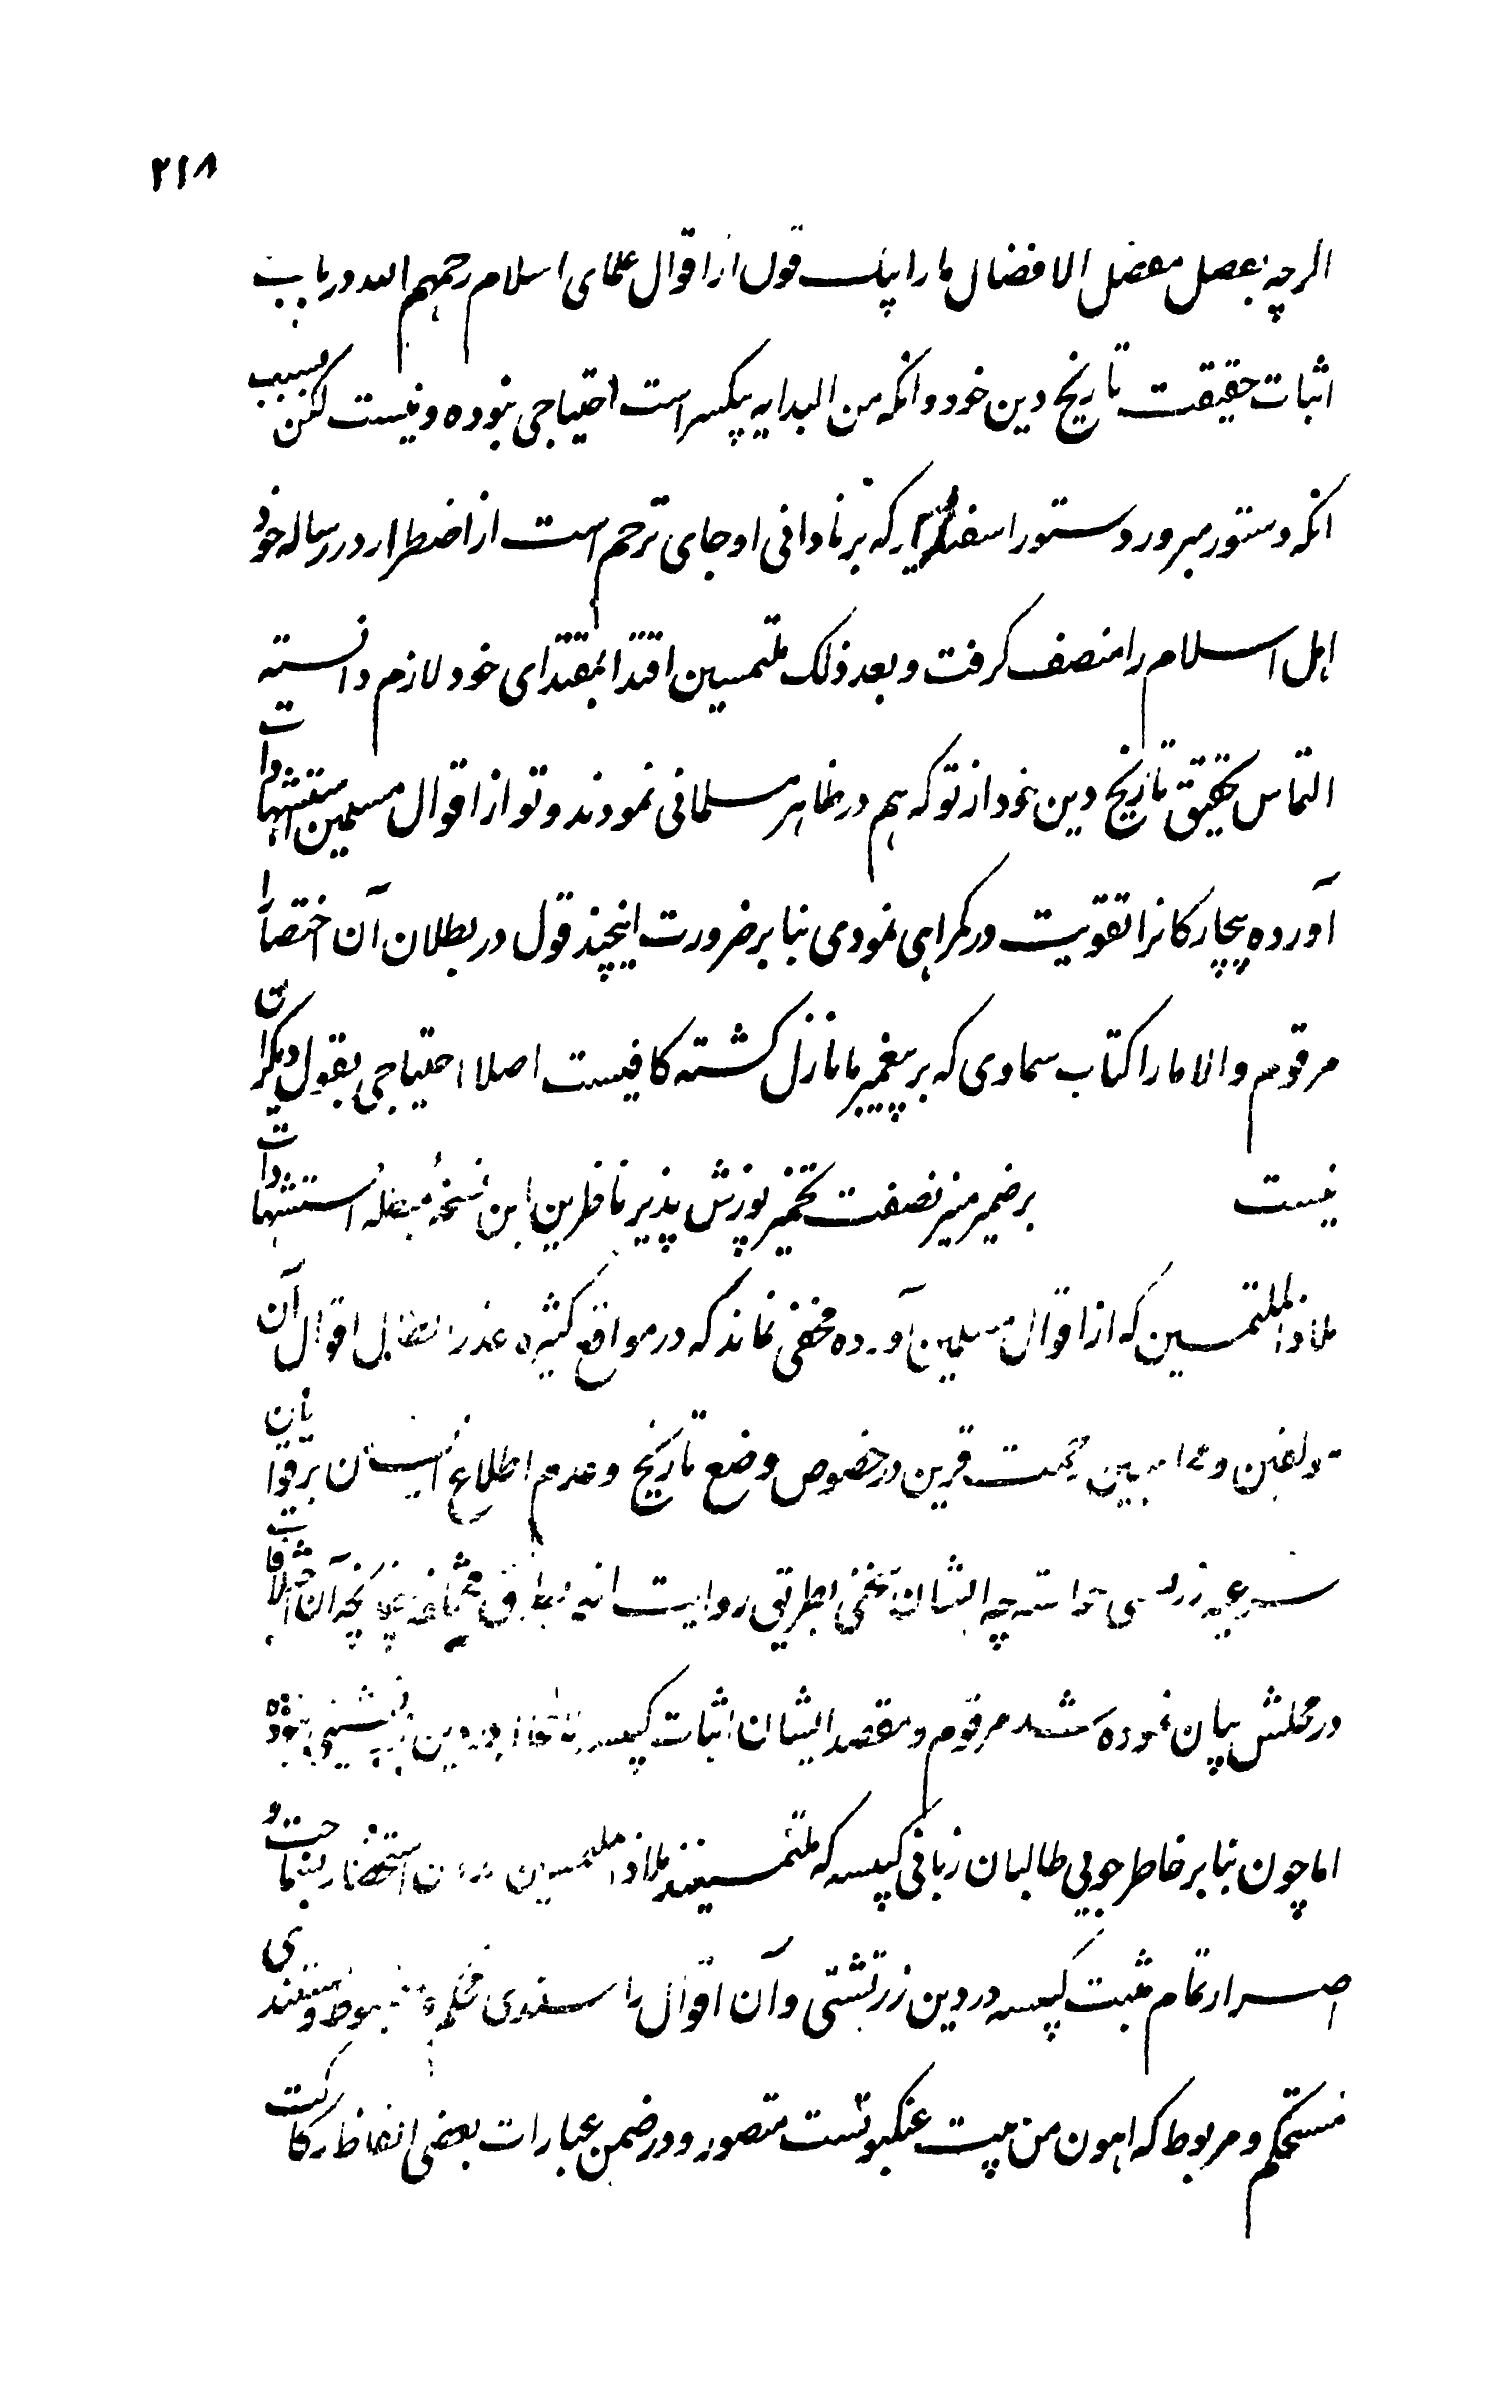 ۲۱۸
اکرچه بفضل مفضل الافضال مارا بیک قول از اقوال علمای اسلام رحمهم الله در باب
اثبات حقیقت تاریخ دین خود و انکه من البدایه بیکبسر است احتیاجی نبوده و نیست لکن بسبب
انکه دستور مبرور دستور اسفندیار که بر نادانی او جای ترحم است از اضطرار در رساله خود
اهل اسلام را منصف کرفت و بعد ذلک ملتمسین اقتدا بمقتدای خود لازم دانسته
التماس تحقیق تاریخ دین خود از تو که هم در ظاهر مسلمانی نمودند و تو از اقوال مسلمین استشهادات
آورده بیچارکانرا تقویت در کمراهی نمودی بنا بر ضرورت اینچند قول در بطلان آن اختصارا
مرقوم والا مارا کتاب سماوی که بر پیغمبر ما نازل کشته کافیست اصلا احتیاجی بقول دیکران
نیست بر ضمیر منیر نصفت تخمیر پوزش پذیر ناظرین این نسخه مبطله استشهادات
ملاذ الملتمسین که از اقوال مسلمین آورده مخفی نماند که در مواقع کثیره عذر ابطال اقوال آن
مولفین و محاسبین حکمت قرین در خصوص وضع تاریخ و عدم اطلاع ایشان بر قوانین
خواسته چه ایشان بطریق روایت چنانچه آن
در محلش بیان نموده شد مرقوم و مقصد ایشان اثبات کبیسه در دین نبوده
اما چون بنا بر خاطر جویی طالبان زبانی کبیسه که ملتمسینند ملاذ الملتمسین بدون استحضار بسماحت و
اصرار تمام مثبت کبیسه در دین زرتشتی و آن اقوال را سندی محکم و مضبوط و مستندی
مستحکم و مربوط که اهون من بیت عنکبوتست متصور و در ضمن عبارات بعضی الفاظ رکاکت